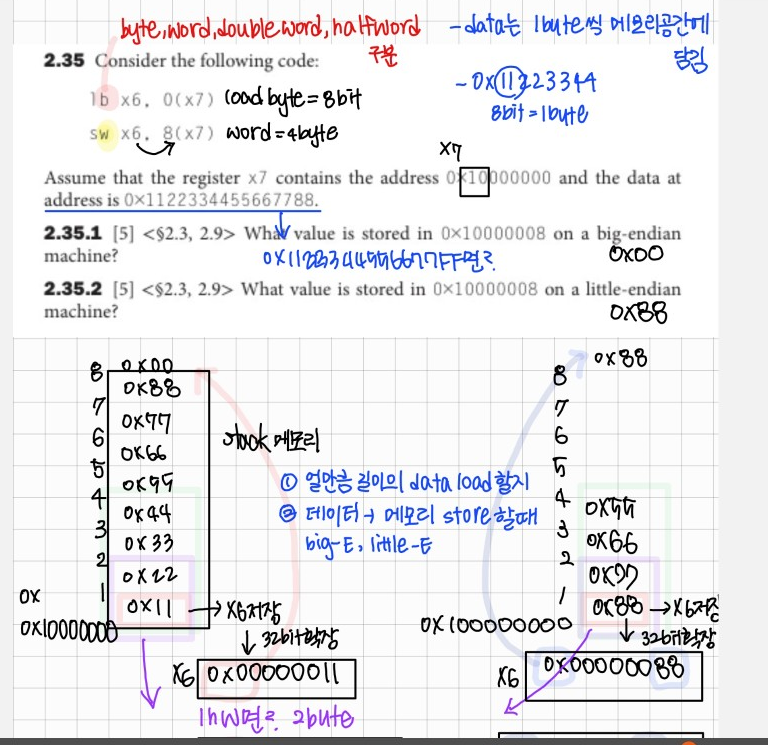 byte, word, double word, halfword
구분
- data는 1byte씩 메모리공간에
담김
2.35 Consider the following code:
- 0x11223344
8bit = 1byte
lb x6, 0(x7) load byte = 8bit
sw x6, 8(x7) word = 4byte
x7
Assume that the register x7 contains the address 0×10000000 and the data at
address is 0×1122334455667788.
2.35.1 [5] <§2.3, 2.9> What value is stored in 0×10000008 on a big-endian
machine?
0x00
0x11223344556677FF면?
2.35.2 [5] <§2.3, 2.9> What value is stored in 0×10000008 on a little-endian
machine?
0x88
8 0x00
0x88
7 0x77
6 0x66
5 0x55
4 0x44
3 0x33
2 0x22
1 0x11 → x6저장
0x
0x10000000
↓ 32bit확장
x6 0x00000011
lhw면? 2byte
메모리
① 얼만큼 길이의 data load할지
② 데이터 → 메모리 store할때
big-E, little-E
0x88
8
7
6
5
4 0x55
3 0x66
2 0x77
1 0x88 → x6저장
0x100000000
↓ 32bit확장
x6 0x00000088